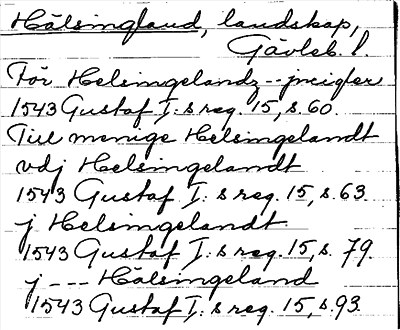 Hälsingland, landskap,
Gävleb. l.
För Helsingelandz -- jnciglex
1543 Gustaf I:s reg. 15, s. 60.
Till menige Helsingelandt
vdj Helsingelandt
1543 Gustaf I:s reg. 15, s. 63.
j Helsingelandt
1543 Gustaf I:s reg. 15, s. 79.
j --- Hälsingeland
1543 Gustaf I:s reg. 15, s. 93.